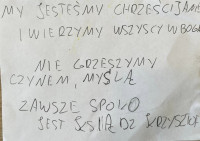 MY JESTEŚMY CHRZEŚCIJANIE
I WIERZYMY WSZYSCY W BOGA
NIE GRZESZYMY
CZYNEM, MYŚLĄ
ZAWSZE SPOKO
JEST KSIĄDZ